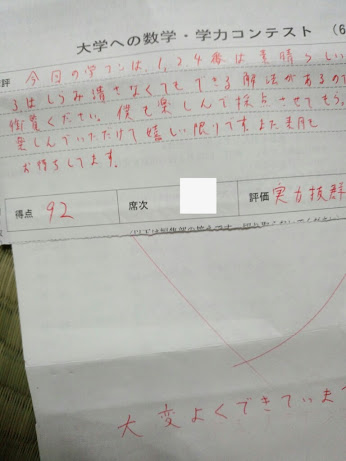 大学への数学・学力コンテスト (6
評 今回の学コンは、1,2,4番は素晴らしい
3はしらみ潰さなくてもできる解法があるので
ください。僕も楽しんで採点させてもら
楽しんでいただけて嬉しい限りです。また来月も
お待ちしてます。
得点 92 席次 評価 実力抜群
大変よくできていま